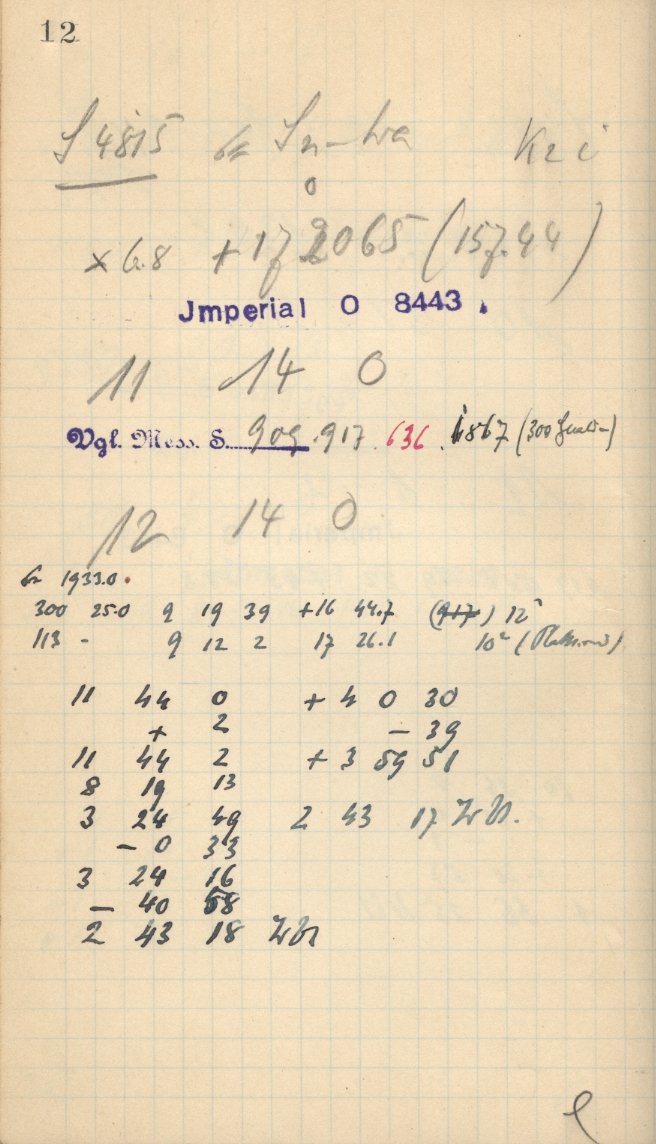 12
S 4815
o
× 6.8 + 17 2065 (157.44)
Jmperial O 8443.
11 14 0
Vgl. Mess. S. 909 . 917 . 636 . 6867 (300
12 14 0
1933.0.
300 25.0 9 19 39 +16 44.7 (917) 12
113 - 9 12 2 17 26.1 10
11 44 0 + 4 0 30
+ 2 - 39
11 44 2 + 3 59 51
8 19 13
3 24 49 2 43 17
- 0 33
3 24 16
- 40 58
2 43 18